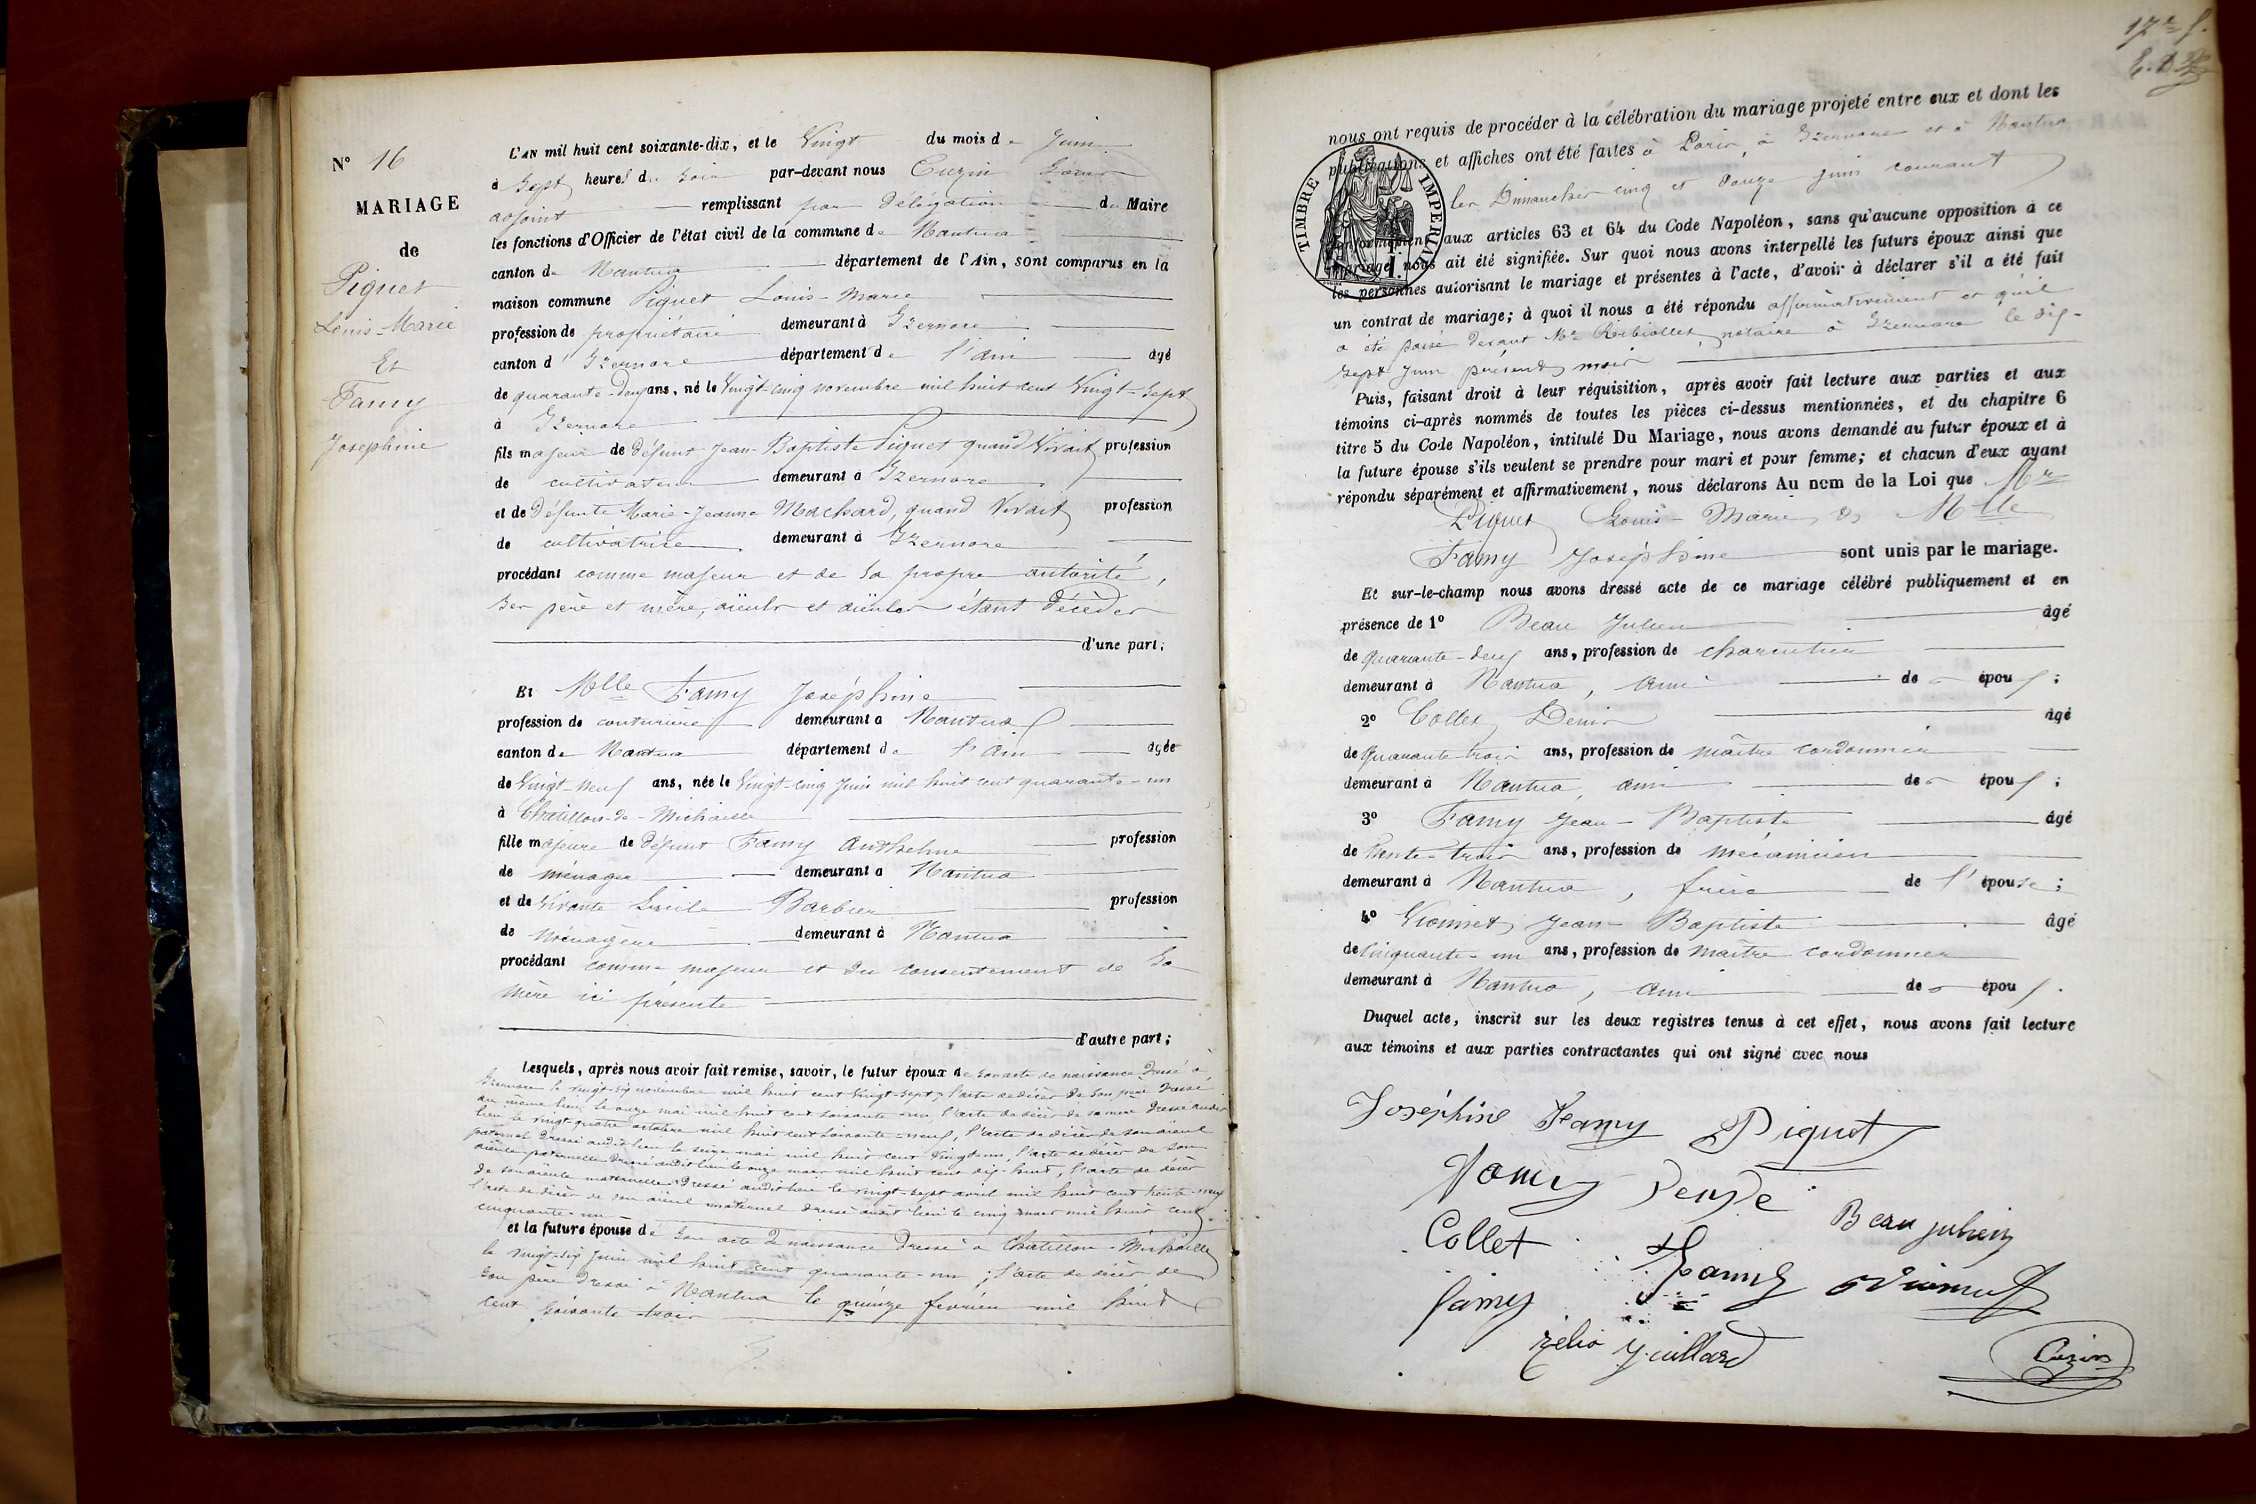 N° 16
MARIAGE
de
Piguet
Louis-Marie
Et
Famy
Joséphine
L'AN mil huit cent soixante-dix, et le Vingt du mois de Juin
à Sept heures du Soir par-devant nous Cuzin
adjoint remplissant par Délégation du Maire
les fonctions d'Officier de l'état civil de la commune de Nantua
canton de Nantua département de l'Ain, sont comparus en la
maison commune Piguet Louis-Marie
profession de propriétaire demeurant à Izernore
canton d'Izernore département de l'Ain âgé
de quarante-deux ans, né le Vingt-cinq novembre mil huit cent Vingt-Sept
à Izernore
fils majeur de Défunt Jean-Baptiste Piguet quand Vivait profession
de cultivateur demeurant à Izernore
et de Défunte Marie-Jeanne Machard, quand Vivait profession
de cultivatrice demeurant à Izernore
procédant comme majeur et de sa propre autorité,
Ses père et mère, aïeuls et aïeules étant Décédés
d'une part;
Et Melle Famy Joséphine
profession de couturière demeurant à Nantua
canton de Nantua département de l'Ain âgée
de Vingt-neuf ans, née le Vingt-cinq Juin mil huit cent quarante-un
à Châtillon-de-Michaille
fille majeure de Défunt Famy Anthelme profession
de ménager demeurant à Nantua
et de Vivante Barbier profession
de Ménagère demeurant à Nantua
procédant comme majeure et du consentement de Sa
Mère ici présente
d'autre part;
Lesquels, après nous avoir fait remise, savoir, le futur époux de son acte de naissance Dressé à
Izernore le vingt-six novembre mil huit cent vingt-sept, l'acte de décès de son père Dressé
au même lieu, le onze mai mil huit cent soixante-un l'acte de décès de sa mère Dressé audit
lieu le vingt quatre octobre mil huit cent soixante-neuf, l'acte de décès de son aïeul
paternel Dressé audit lieu le seize mai mil huit cent vingt-un, l'acte de décès de Son
aïeule paternelle Dressé audit lieu le onze mars mil huit cent dix-huit, l'acte de décès
de son aïeule maternelle Dressé audit lieu le vingt-sept avril mil huit cent trente-neuf
l'acte de décès de son aïeul maternel dressé audit lieu le cinq mars mil huit cent
cinquante-un
et la future épouse de Son acte de naissance Dressé à Châtillon-Michaille
le vingt-six Juin mil huit cent quarante-un; l'acte de décès de
son père Dressé à Nantua le quinze février mil huit
cent soixante trois
17e f.
nous ont requis de procéder à la célébration du mariage projeté entre eux et dont les
publications et affiches ont été faites à Paris, à Izernore et à Nantua
les Dimanches cinq et douze juin courant
TIMBRE IMPERIAL
conformément aux articles 63 et 64 du Code Napoléon, sans qu'aucune opposition à ce
mariage nous ait été signifiée. Sur quoi nous avons interpellé les futurs époux ainsi que
les personnes autorisant le mariage et présentes à l'acte, d'avoir à déclarer s'il a été fait
un contrat de mariage; à quoi il nous a été répondu affirmativement et qu'il
a été passé devant Me notaire à Izernore le dix-
sept Juin présent mois
Puis, faisant droit à leur réquisition, après avoir fait lecture aux parties et aux
témoins ci-après nommés de toutes les pièces ci-dessus mentionnées, et du chapitre 6
titre 5 du Code Napoléon, intitulé Du Mariage, nous avons demandé au futur époux et à
la future épouse s'ils veulent se prendre pour mari et pour femme; et chacun d'eux ayant
répondu séparément et affirmativement, nous déclarons Au nom de la Loi que Mr
Piguet Louis-Marie & Melle
Famy Joséphine sont unis par le mariage.
Et sur-le-champ nous avons dressé acte de ce mariage célébré publiquement et en
présence de 1° Beau Julien âgé
de quarante-deux ans, profession de charcutier
demeurant à Nantua, ami des époux;
2° Collet Denis âgé
de Quarante-trois ans, profession de maître cordonnier
demeurant à Nantua, ami des époux;
3° Famy Jean-Baptiste âgé
de trente-trois ans, profession de mécanicien
demeurant à Nantua, frère de l'épouse;
4° Vionnet Jean-Baptiste âgé
de Cinquante-un ans, profession de maître cordonnier
demeurant à Nantua, ami des époux.
Duquel acte, inscrit sur les deux registres tenus à cet effet, nous avons fait lecture
aux témoins et aux parties contractantes qui ont signé avec nous
Joséphine Famy Piguet
Famy
Collet Beau julien
Famy Famy Vionnet
Cuzin